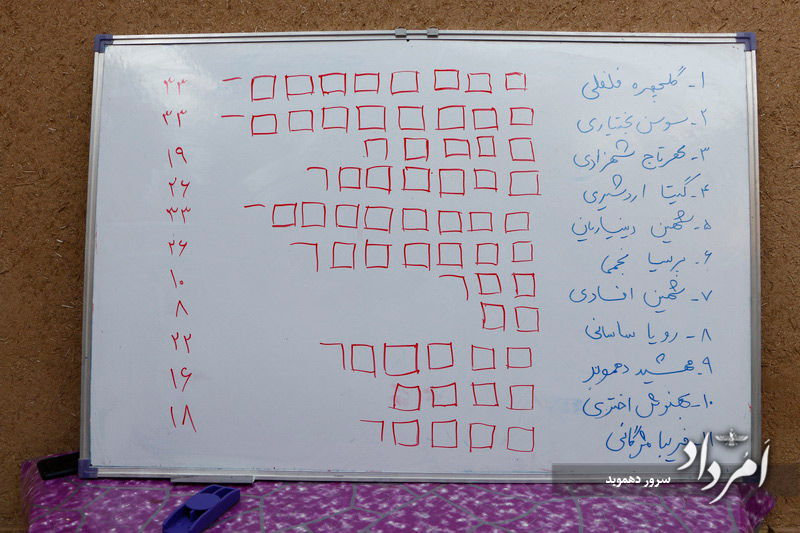 ۱- گلچهره فلفلی ۳۳
۲- سوسن بختیاری ۳۳
۳- مهرتاج شهزادی ۱۹
۴- گیتا اردشیری ۲۶
۵- شهین دینیاریان ۳۳
۶- پرسیا نجمی ۲۶
۷- شهین افسادی ۱۰
۸- رویا ساسانی ۸
۹- مهشید دهموبد ۲۲
۱۰- بهنوش اختری ۱۶
۱۱- فریبا مژگانی ۱۸
اَمُرداد
سرور دهموبد